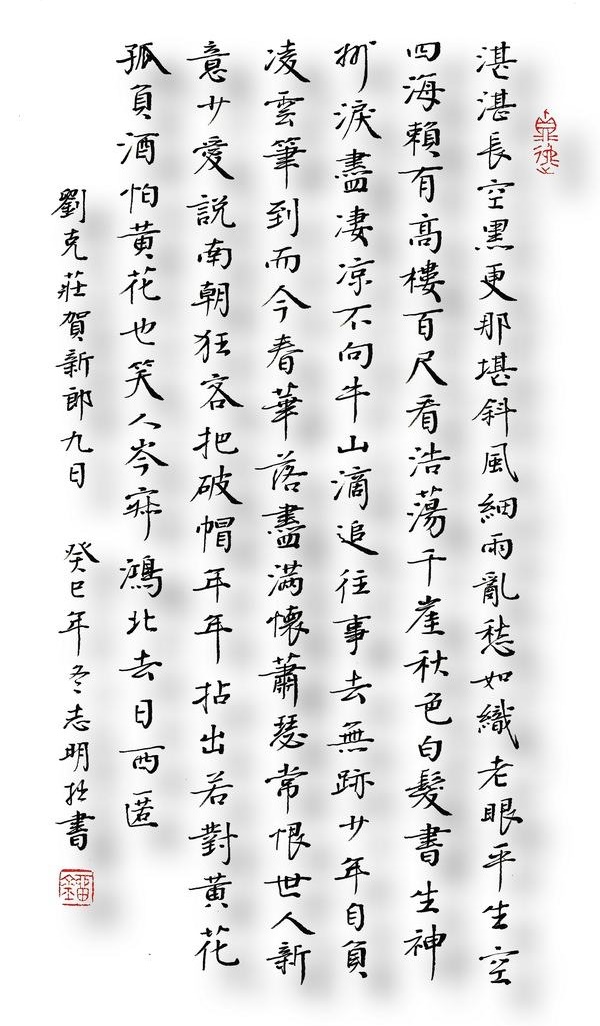 湛湛長空黑更那堪斜風細雨亂愁如織老眼平生空
四海賴有高樓百尺看浩蕩千崖秋色白髮書生神
州淚盡凄凉不向牛山滴追往事去無跡少年自負
凌雲筆到而今春華落盡滿懷蕭瑟常恨世人新
意少愛説南朝狂客把破帽年年拈出若對黄花
孤負酒怕黄花也笑人岑寂鴻北去日西匿
劉克莊賀新郎九日 癸巳年冬志明書